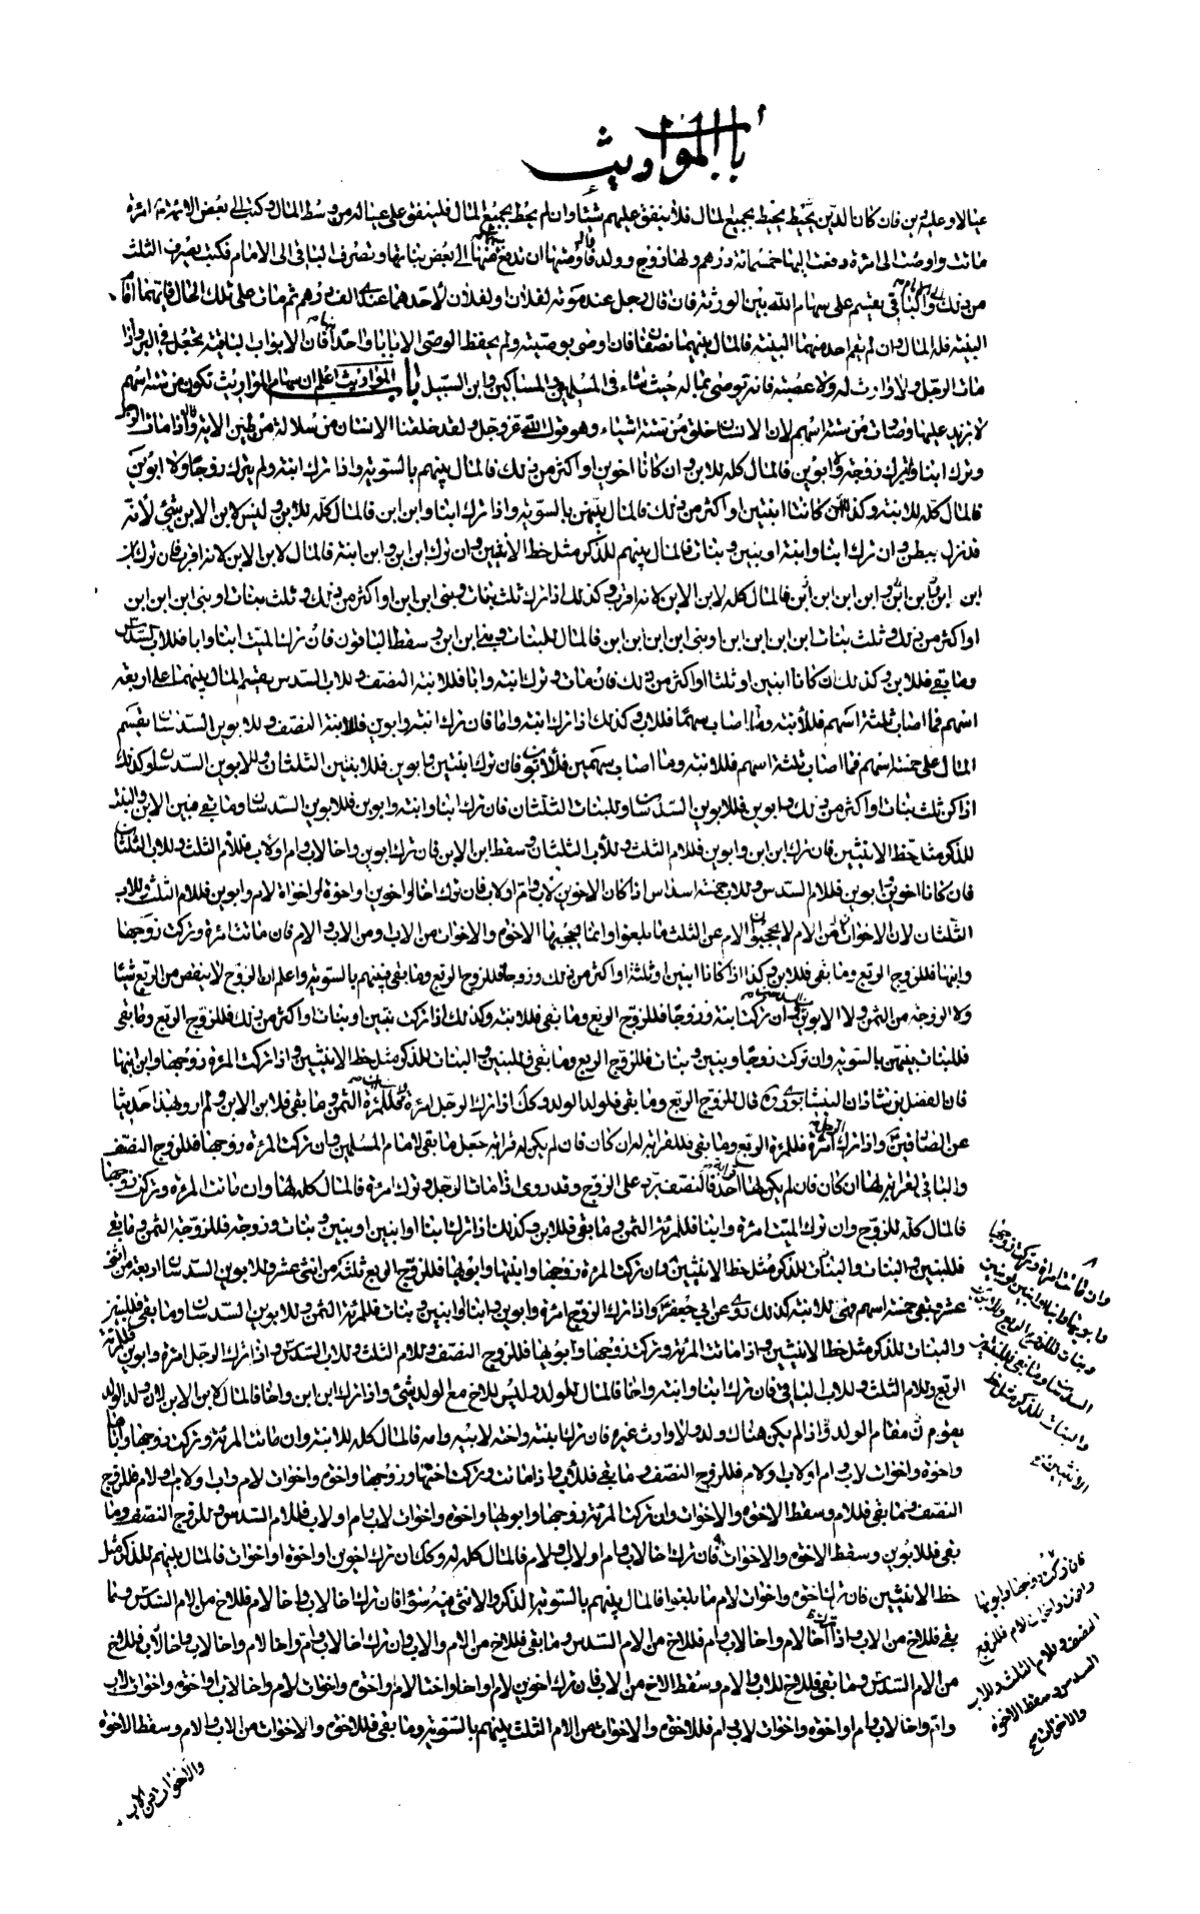 باب المواريث
عيالا وعليه دين فان كان الدين يحيط بجميع المال فلا ينفق عليهم شيئا وان لم يحط بجميع المال فلينفق على عياله من وسط المال وكتب الى بعض الائمة امرئة
ماتت واوصت الى امرئة دفعت اليها خمسمائة درهم ولها زوج وولد فاوصتها ان تدفع سهما منها الى بعض بناتها وتصرف الباقى الى الامام فكتب يصرف الثلث
من ذلك والباقى يقسم على سهام الله بين الورثة فان قال رجل عند موته لفلان ولفلان لاحدهما عندى الف درهم ثم مات على تلك الحال فايهما اقام
البينة فله المال وان لم يقم احد منهما البينة فالمال بينهما نصفان فان اوصى بوصيته ولم يحفظ الوصى الا بابا واحدا فان الابواب الباقية يجعل فى البر واذا
مات الرجل ولا وارث له ولا عصبة فانه يوصى بماله حيث شاء فى المسلمين والمساكين وابن السبيل باب المواريث اعلم ان سهام المواريث تكون من ستة اسهم
لا يزيد عليها وصارت من ستة اسهم لان الانسان خلق من ستة اشياء وهو قول الله عز وجل ولقد خلقنا الانسان من سلالة من طين الاية واذا مات الرجل
وترك ابنا ولم يترك زوجة ولا ابوين فالمال كله للابن وان كانا اخوين او اكثر من ذلك فالمال بينهم بالسوية واذا ترك ابنة ولم يترك زوجا ولا ابوين
فالمال كله للابنة وكذلك ان كانتا ابنتين او اكثر من ذلك فالمال بينهن بالسوية واذا ترك ابنا وابن ابن فالمال كله للابن وليس لابن الابن شئ لانه
قد نزل ببطن وان ترك ابنا وابنة او بنين وبنات فالمال بينهم للذكر مثل حظ الانثيين وان ترك ابن ابن وابن ابنة فالمال لابن الابن لانه اقرب فان ترك ابن
ابن ابن وابن ابن ابن ابن فالمال كله لابن الابن لانه اقرب وكذلك اذا ترك ثلث بنات وبنى ابن ابن او اكثر من ذلك وثلث بنات او بنى ابن ابن ابن
او اكثر من ذلك وثلث بنات ابن ابن ابن ابن او بنى ابن ابن ابن ابن فالمال للبنات وبنى ابن ابن وسقط الباقون فان ترك الميت ابنا وابا فللاب السدس
وما بقى فللابن وكذلك ان كانا ابنين او ثلثا او اكثر من ذلك فان مات وترك ابنة وابا فللابنة النصف وللاب السدس يقسم المال بينهما على اربعة
اسهم فما اصاب ثلثة اسهم فللابنة وما اصاب سهما فللاب وكذلك اذا ترك ابنة واما فان ترك ابنة وابوين فللابنة النصف وللابوين السدسان يقسم
المال على خمسة اسهم فما اصاب ثلثة اسهم فللابنة وما اصاب سهمين فللابوين فان ترك ابنتين وابوين فللابنتين الثلثان وللابوين السدسان وكذلك
اذا كن ثلث بنات او اكثر من ذلك وابوين فللابوين السدسان وللبنات الثلثان فان ترك ابنا وابنة وابوين فللابوين السدسان وما بقى فبين الابن والبنت
للذكر مثل حظ الانثيين فان ترك ابن ابن وابوين فللام الثلث وللاب الثلثان وسقط ابن الابن فان ترك ابوين واخا لاب وام او لاب فللام الثلث وللاب الثلثان
فان كانا اخوين وابوين فللام السدس وللاب خمسة اسداس اذا كان الاخوين لاب وام او لاب فان ترك اخا او اخوين او اخوة او اخوات لام وابوين فللام الثلث وللاب
الثلثان لان الاخوات من الام لا يحجبون الام عن الثلث ما بلغوا وانما يحجبها الاخوة والاخوات من الاب ومن الاب والام فان ماتت امرئة وتركت زوجها
وابنها فللزوج الربع وما بقى فللابن وكذا اذا كانا ابنين او ثلثة او اكثر من ذلك وزوجا فللزوج الربع وما بقى فبينهم بالسوية واعلم ان الزوج لا ينقص من الربع شيئا
ولا الزوجة من الثمن ولا الابوين من السدسين وان تركت ابنة وزوجا فللزوج الربع وما بقى فللابنة وكذلك اذا تركت بنتين او بنات او اكثر من ذلك فللزوج الربع وما بقى
فللبنات بينهن بالسوية وان تركت زوجا وبنين وبنات فللزوج الربع وما بقى فللبنين والبنات للذكر مثل حظ الانثيين واذا تركت المرئة زوجها وابن ابنها
فان الفضل بن شاذان النيشابورى ره قال للزوج الربع وما بقى فلولد الولد وكذلك اذا ترك الرجل امرئة وابن ابن فللمرئة الثمن وما بقى فلابن الابن ولم ارو بهذا حديثا
عن الصادقين واذا ترك الرجل امرئة فللمرئة الربع وما بقى فللقرابة له ان كان فان لم يكن له قرابة جعل ما بقى لامام المسلمين وان تركت المرئة زوجها فللزوج النصف
والباقى لقرابة لها ان كان فان لم يكن لها قرابة احد فالنصف يرد على الزوج وقد روى اذا مات الرجل وترك امرئة فالمال كله لها وان ماتت المرئة وتركت زوجها
فالمال كله للزوج وان ترك الميت امرئة وابنا فللمرئة الثمن وما بقى فللابن وكذلك اذا ترك ابنا او ابنين او بنين وبنات وزوجة فللزوجة الثمن وما بقى
فللبنين والبنات والبنات للذكر مثل حظ الانثيين وان تركت المرئة زوجها وابنتها وابويها فللزوج الربع ثلثة من اثنى عشر وللابوين السدسان اربعة من اثنى
عشر وبقى خمسة اسهم فهى للابنة كذلك روى عن ابى جعفر واذا ترك الزوج امرئة وابوين وابنا او بنين وبنات فللمرئة الثمن وللابوين السدسان وما بقى فللبنين
والبنات للذكر مثل حظ الانثيين واذا ماتت المرئة وتركت زوجها وابويها فللزوج النصف وللام الثلث وللاب السدس واذا ترك الرجل امرئة وابوين فللمرئة
الربع وللام الثلث وللاب الباقى فان ترك ابنا وابنة واخا فالمال للولد وليس للاخ مع الولد شئ واذا ترك ابن ابن واخا فالمال لابن الابن لان ولد الولد
يقوم مقام الولد اذا لم يكن هناك ولد ولا وارث غيره فان ترك ابنة واخته لابيه وامه فالمال كله للابنة وان ماتت المرئة وتركت زوجها واباها
واخوة واخوات لاب وام او لاب او لام فللزوج النصف وما بقى فللاب واذا ماتت وتركت اختها وزوجها واخوة واخوات لام واب او لاب او لام فللزوج
النصف وما بقى فللام وسقط الاخوة والاخوات وان تركت المرئة زوجها وابويها واخوة واخوات لاب وام او لاب فللام السدس وللزوج النصف وما
بقى فللابوين وسقط الاخوة والاخوات فان ترك اخا لاب وام او لاب او لام فالمال كله له وكذلك ان ترك اخوين او اخوة او اخوات فالمال بينهم للذكر مثل
حظ الانثيين فان ترك اخوة واخوات لام ما بلغوا فالمال بينهم بالسوية الذكر والانثى فيه سواء فان ترك اخا لاب واخا لام فللاخ من الام السدس وما
بقى فللاخ من الاب واذا ترك اخا لام واخا لاب وام فللاخ من الام السدس وما بقى فللاخ من الام والاب وان ترك اخا لاب وام واخا لام واخا لاب فللاخ
من الام السدس وما بقى فللاخ للاب والام وسقط الاخ من الاب فان ترك اخوين لام او اخا واختا لام واخوة واخوات لام واخا لاب واخوة واخوات لاب
وام واخا لاب وام او اخوة واخوات لاب وام فللاخوة والاخوات من الام الثلث بينهم بالسوية وما بقى فللاخوة والاخوات من الاب والام وسقط الاخوة
والاخوات من الاب
وان ماتت امرئة وتركت زوجها
وابويها وابنا او ابنين او بنين
وبنات فللزوج الربع وللابوين
السدسان وما بقى فللبنين
والبنات للذكر مثل حظ
الانثيين
فان تركت زوجها وابويها
واخوة واخوات لام فللزوج
النصف وللام الثلث وللاب
السدس وسقط الاخوة
والاخوات